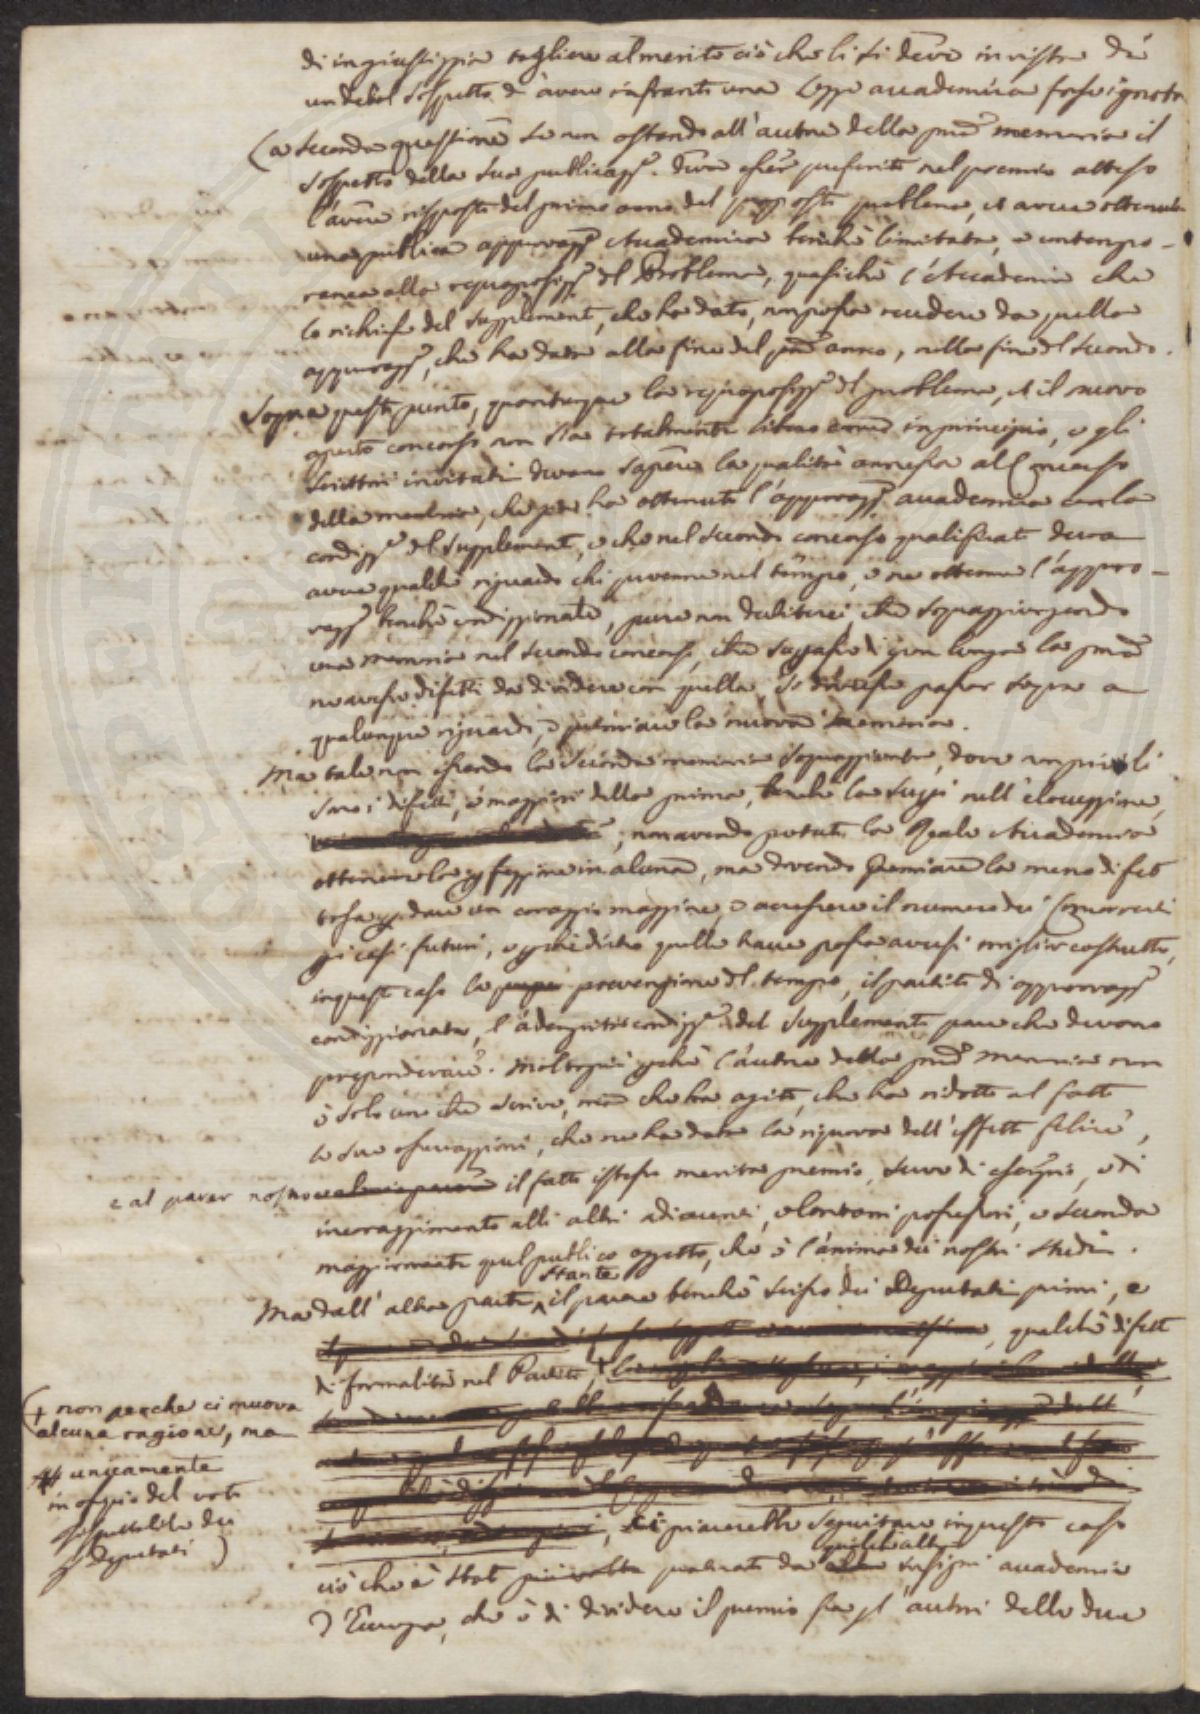 di ingiustizzia togliere al merito ciò che li si deve in vista di
un debol sospetto di avere infranto una Legge accademica forse ignota
La seconda questione se non ostando all'autore della pma memoria il
sospetto della sua publicazze. deva esser preferito nel premio atteso
l'avere risposto del primo anno del proposto problema, et avere ottenuto
una publica approvazze Accademica benchè limitata, e contempo-
ranea alla repropossizze del Problema, quasichè l'Accademia che
lo richiese del supplemento, che ha dato, non possa recedere da quella
approvazze, che ha data alla fine del pmo anno, nella fine del secondo.
Sopra questo punto, quantunque la repropossizze del problema, et il nuovo
aperto concorso non sia totalmente libero come in principio, e gli
scrittori invitati devano sapere la qualità annessa al Concorso
della memoria, che ha ottenuto l'approvazze accademica con la
condizze del supplemento, e che nel secondo concorso qualificato deva
avere qualche riguardo chi prevenne nel tempo, e ne ottenne l'appro-
vazze benchè condizzionata, pure non dubiterei, che sopraggiungendo
una memoria nel secondo concorso, che superasse di gran lunga la pma
ne avesse difetti da dividere con quella, si dovesse passar sopra a
qualunque riguardi, e premiare la nuova memoria.
Ma tale non essendo la seconda memoria sopraggiunta, dove non piccoli
sono i difetti, e maggiori della prima, benchè la superi nell'elocuzzione,
; non avendo potuto la Reale Accademia
ottenere la perfezzione in alcuna, ma dovendo premiare la meno difet
tosa per dare un coraggio maggiore, e accrescere il numero dei Concorrenti
pei casi futuri, e perchè dietro quelle trace possa aversi miglior costrutto,
in questo caso la prevenzione del tempo, il partito di approvazze
condizzionata, e l'adempita condizze del supplemento pare che devano
preponderare. Molto più perchè l'autore della pma Memoria non
è solo uno che scrive, ma che ha agito, che ha ridotto al fatto
le sue osservazzioni, che ne ha data la riprova dell'effetto felice,
e al parer nostro il fatto istesso merita premio, serve di esempio, e di
incoraggimento alli altri adiacenti, e lontani possessori, e seconda
maggiormente quel publico oggetto, che è l'anima dei nostri studi.
Ma dall'altra parte, stante il parere benchè scisso dei Deputati primi, e
, qualche difetto
di formalità nel Partito, +
(+ non perche ci muova
alcuna ragione, ma
unicamente
in ossequio del voto
rispettabile dei
SS. Deputati)
, ci piacerebbe seguitare in questo caso
ciò che è stato praticato da qualche altra insigni accademie
d'Europa, che è di dividere il premio fra gl'autori delle due